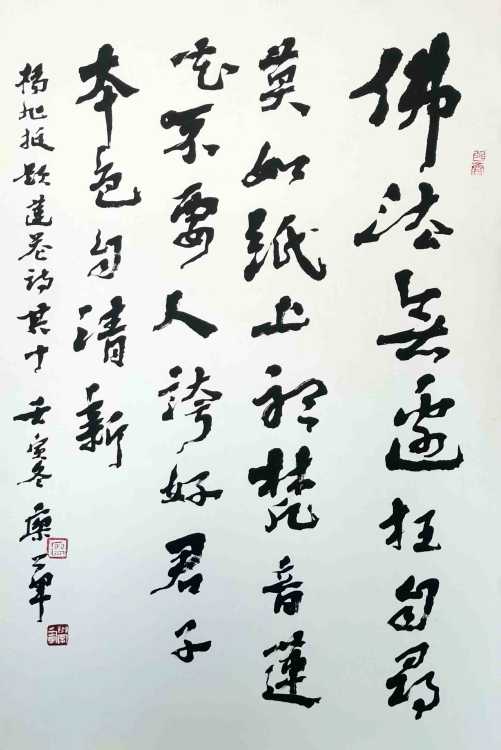 佛法無邊枉自尋
莫如紙上聆梵音蓮
花不要人誇好君子
本色自清新
楊旭拔題蓮荷詩其十 壬寅冬